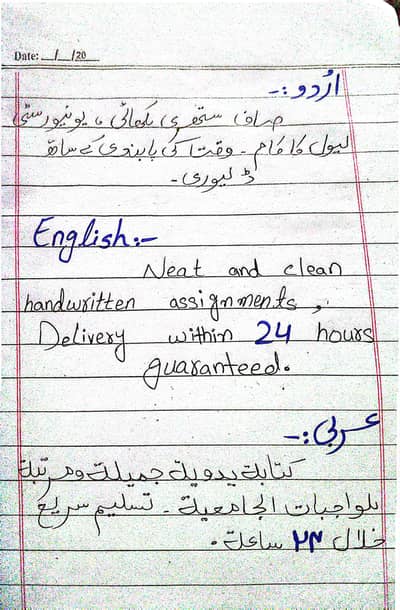 Date: __/__/20
اُردو:-
صاف ستھری لکھائی، یونیورسٹی
لیول کا کام۔ وقت کی پابندی کے ساتھ
ڈلیوری۔
English:-
Neat and clean
handwritten assignments,
Delivery within 24 hours
guaranteed.
عربی:-
كتابة يدوية جميلة ومرتبة
للواجبات الجامعية۔ تسليم سريع
خلال ۲۴ ساعة.